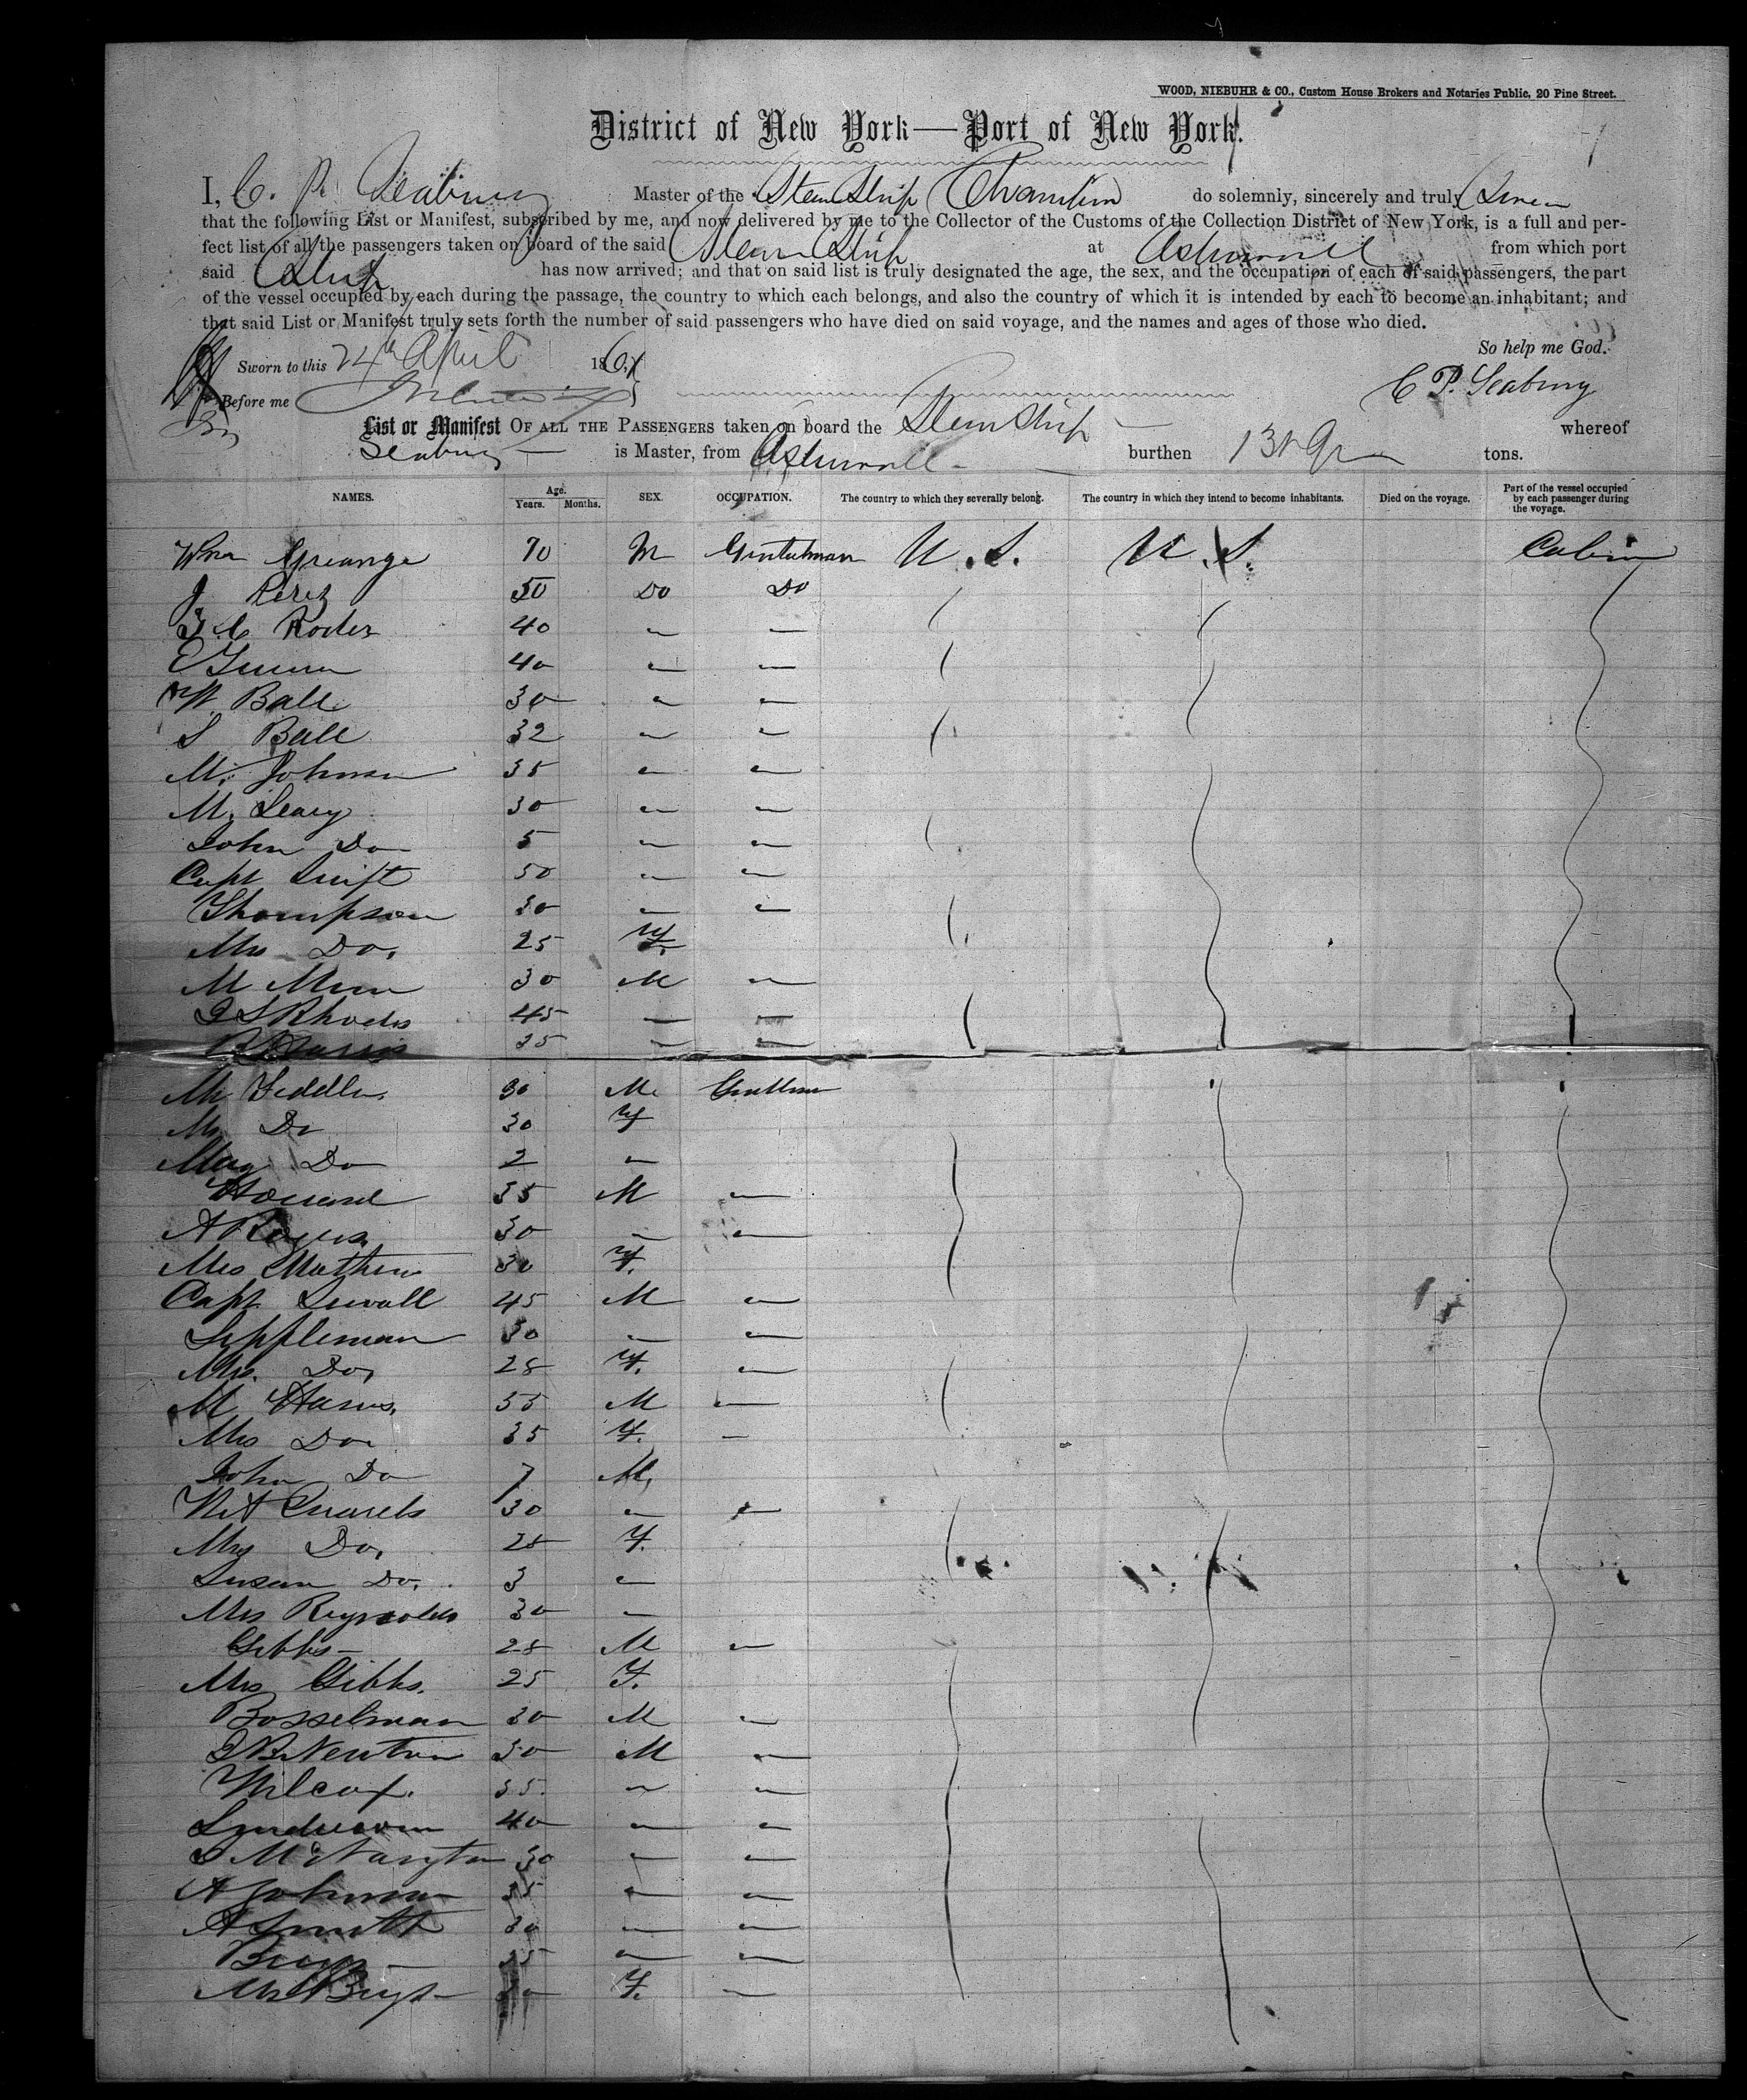 WOOD, NIEBUHR & CO., Custom House Brokers and Notaries Public, 20 Pine Street.
District of New York—Port of New York.
I, C. P. Seabury Master of the Steam Ship Champion do solemnly, sincerely and truly Swear
that the following List or Manifest, subscribed by me, and now delivered by me to the Collector of the Customs of the Collection District of New York, is a full and per-
fect list of all the passengers taken on board of the said Steam Ship at Aspinwall from which port
said Ship has now arrived; and that on said list is truly designated the age, the sex, and the occupation of each of said passengers, the part
of the vessel occupied by each during the passage, the country to which each belongs, and also the country of which it is intended by each to become an inhabitant; and
that said List or Manifest truly sets forth the number of said passengers who have died on said voyage, and the names and ages of those who died.
So help me God.
Sworn to this 24th April 186
C P. Seabury
Before me
List or Manifest OF ALL THE PASSENGERS taken on board the Steam Ship whereof
Seabury is Master, from Aspinwall burthen tons.
NAMES. Age. Years. Months. SEX. OCCUPATION. The country to which they severally belong. The country in which they intend to become inhabitants. Died on the voyage. Part of the vessel occupied by each passenger during the voyage.
Wm 70 M Gentleman U.S. U.S. Cabin
J Perez 50 Do Do
40 — —
E 40 — —
W. Ball 30 — —
S Ball 32 — —
M. Johnson 35 — —
M. Leary 30 — —
John Do 5 — —
Capt Swift 50 — —
Thompson 30 — —
Mrs Do. 25 F.
M 30 M —
Rhodes 45 — —
35 — —
Mr Feddler 30 M. Gentleman
Mrs Do 30 F
May Do 2 —
Howard 35 M —
A 30 — —
Mrs Mathews 30 F.
Capt Sewall 45 M —
Seppleman 30 — —
Mrs. Do, 28 F. —
M Harris, 55 M —
Mrs Do 35 F. —
John Do 7 M,
Quarels 30 — —
Mrs Do, 28 F.
Susan Do, 3 —
Mrs Reynolds 30 —
Gibbs 28 M —
Mrs Gibbs. 25 F.
Bosselman 30 M —
Newton 30 M —
Wilcox. 35. — —
40 — —
30 — —
A Johnson 35 — —
A Smith 30 — —
35 — —
Mrs F. —